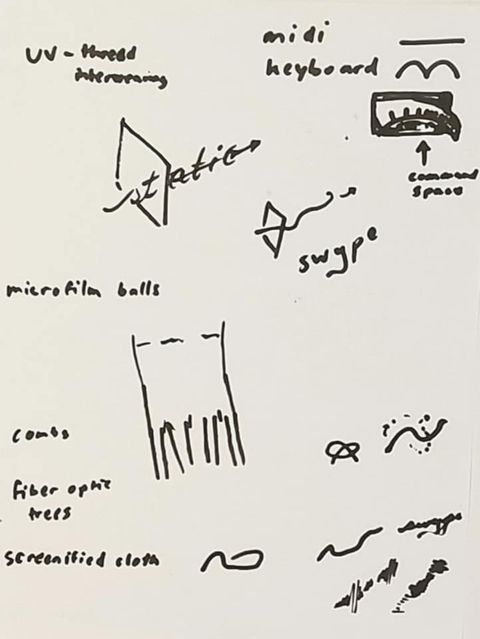 UV-thread
interweaving
midi
keyboard
static
command
space
swype
microfilm balls
combs
fiber optic
trees
screenified cloth
swype